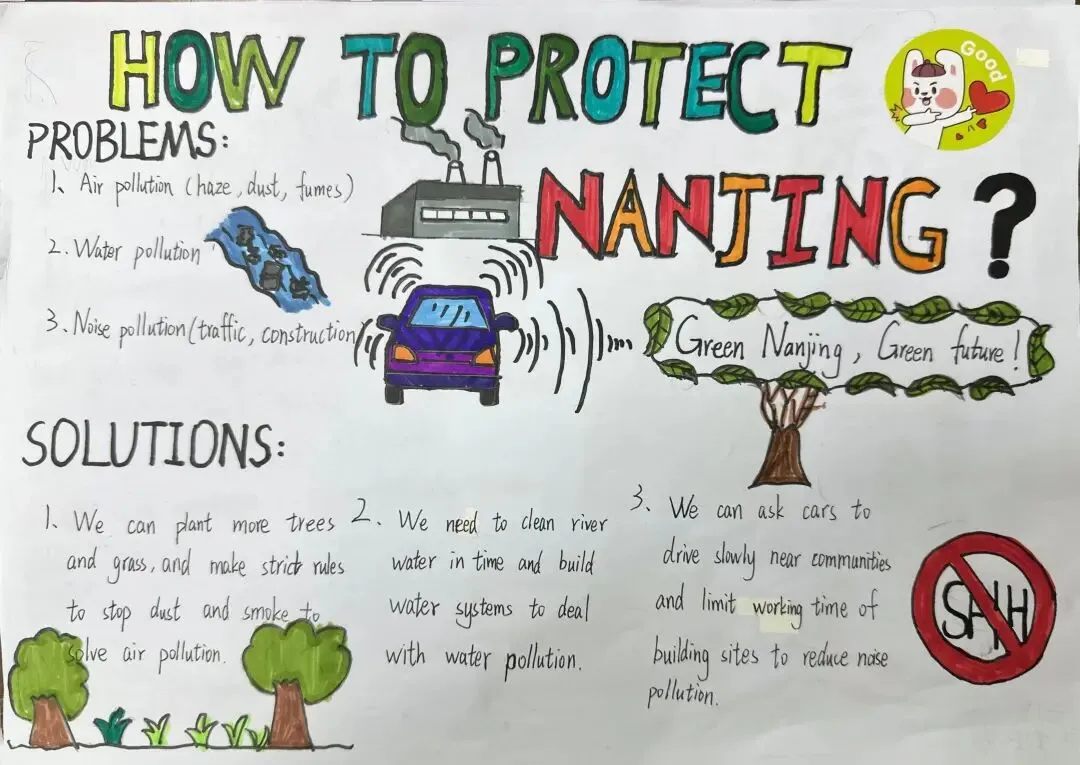 HOW TO PROTECT
NANJING ?
Good
PROBLEMS:
1、Air pollution (haze, dust, fumes)
2. Water pollution
3. Noise pollution (traffic, construction
Green Nanjing, Green future!
SOLUTIONS:
1、We can plant more trees
and grass, and make strict rules
to stop dust and smoke to
solve air pollution.
2. We need to clean river
water in time and build
water systems to deal
with water pollution.
3. We can ask cars to
drive slowly near communities
and limit working time of
building sites to reduce noise
pollution.